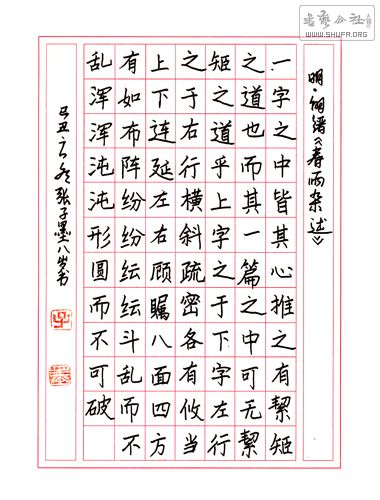 书艺公社
WWW.SHUFA.ORG
明·解缙《春雨杂述》
一字之中皆其心推之有絜矩
之道也而其一篇之中可无絜
矩之道乎上字之于下字左行
之于右行横斜疏密各有攸当
上下连延左右顾瞩八面四方
有如布阵纷纷纭纭斗乱而不
乱浑浑沌沌形圆而不可破
己丑冬张子墨八岁书